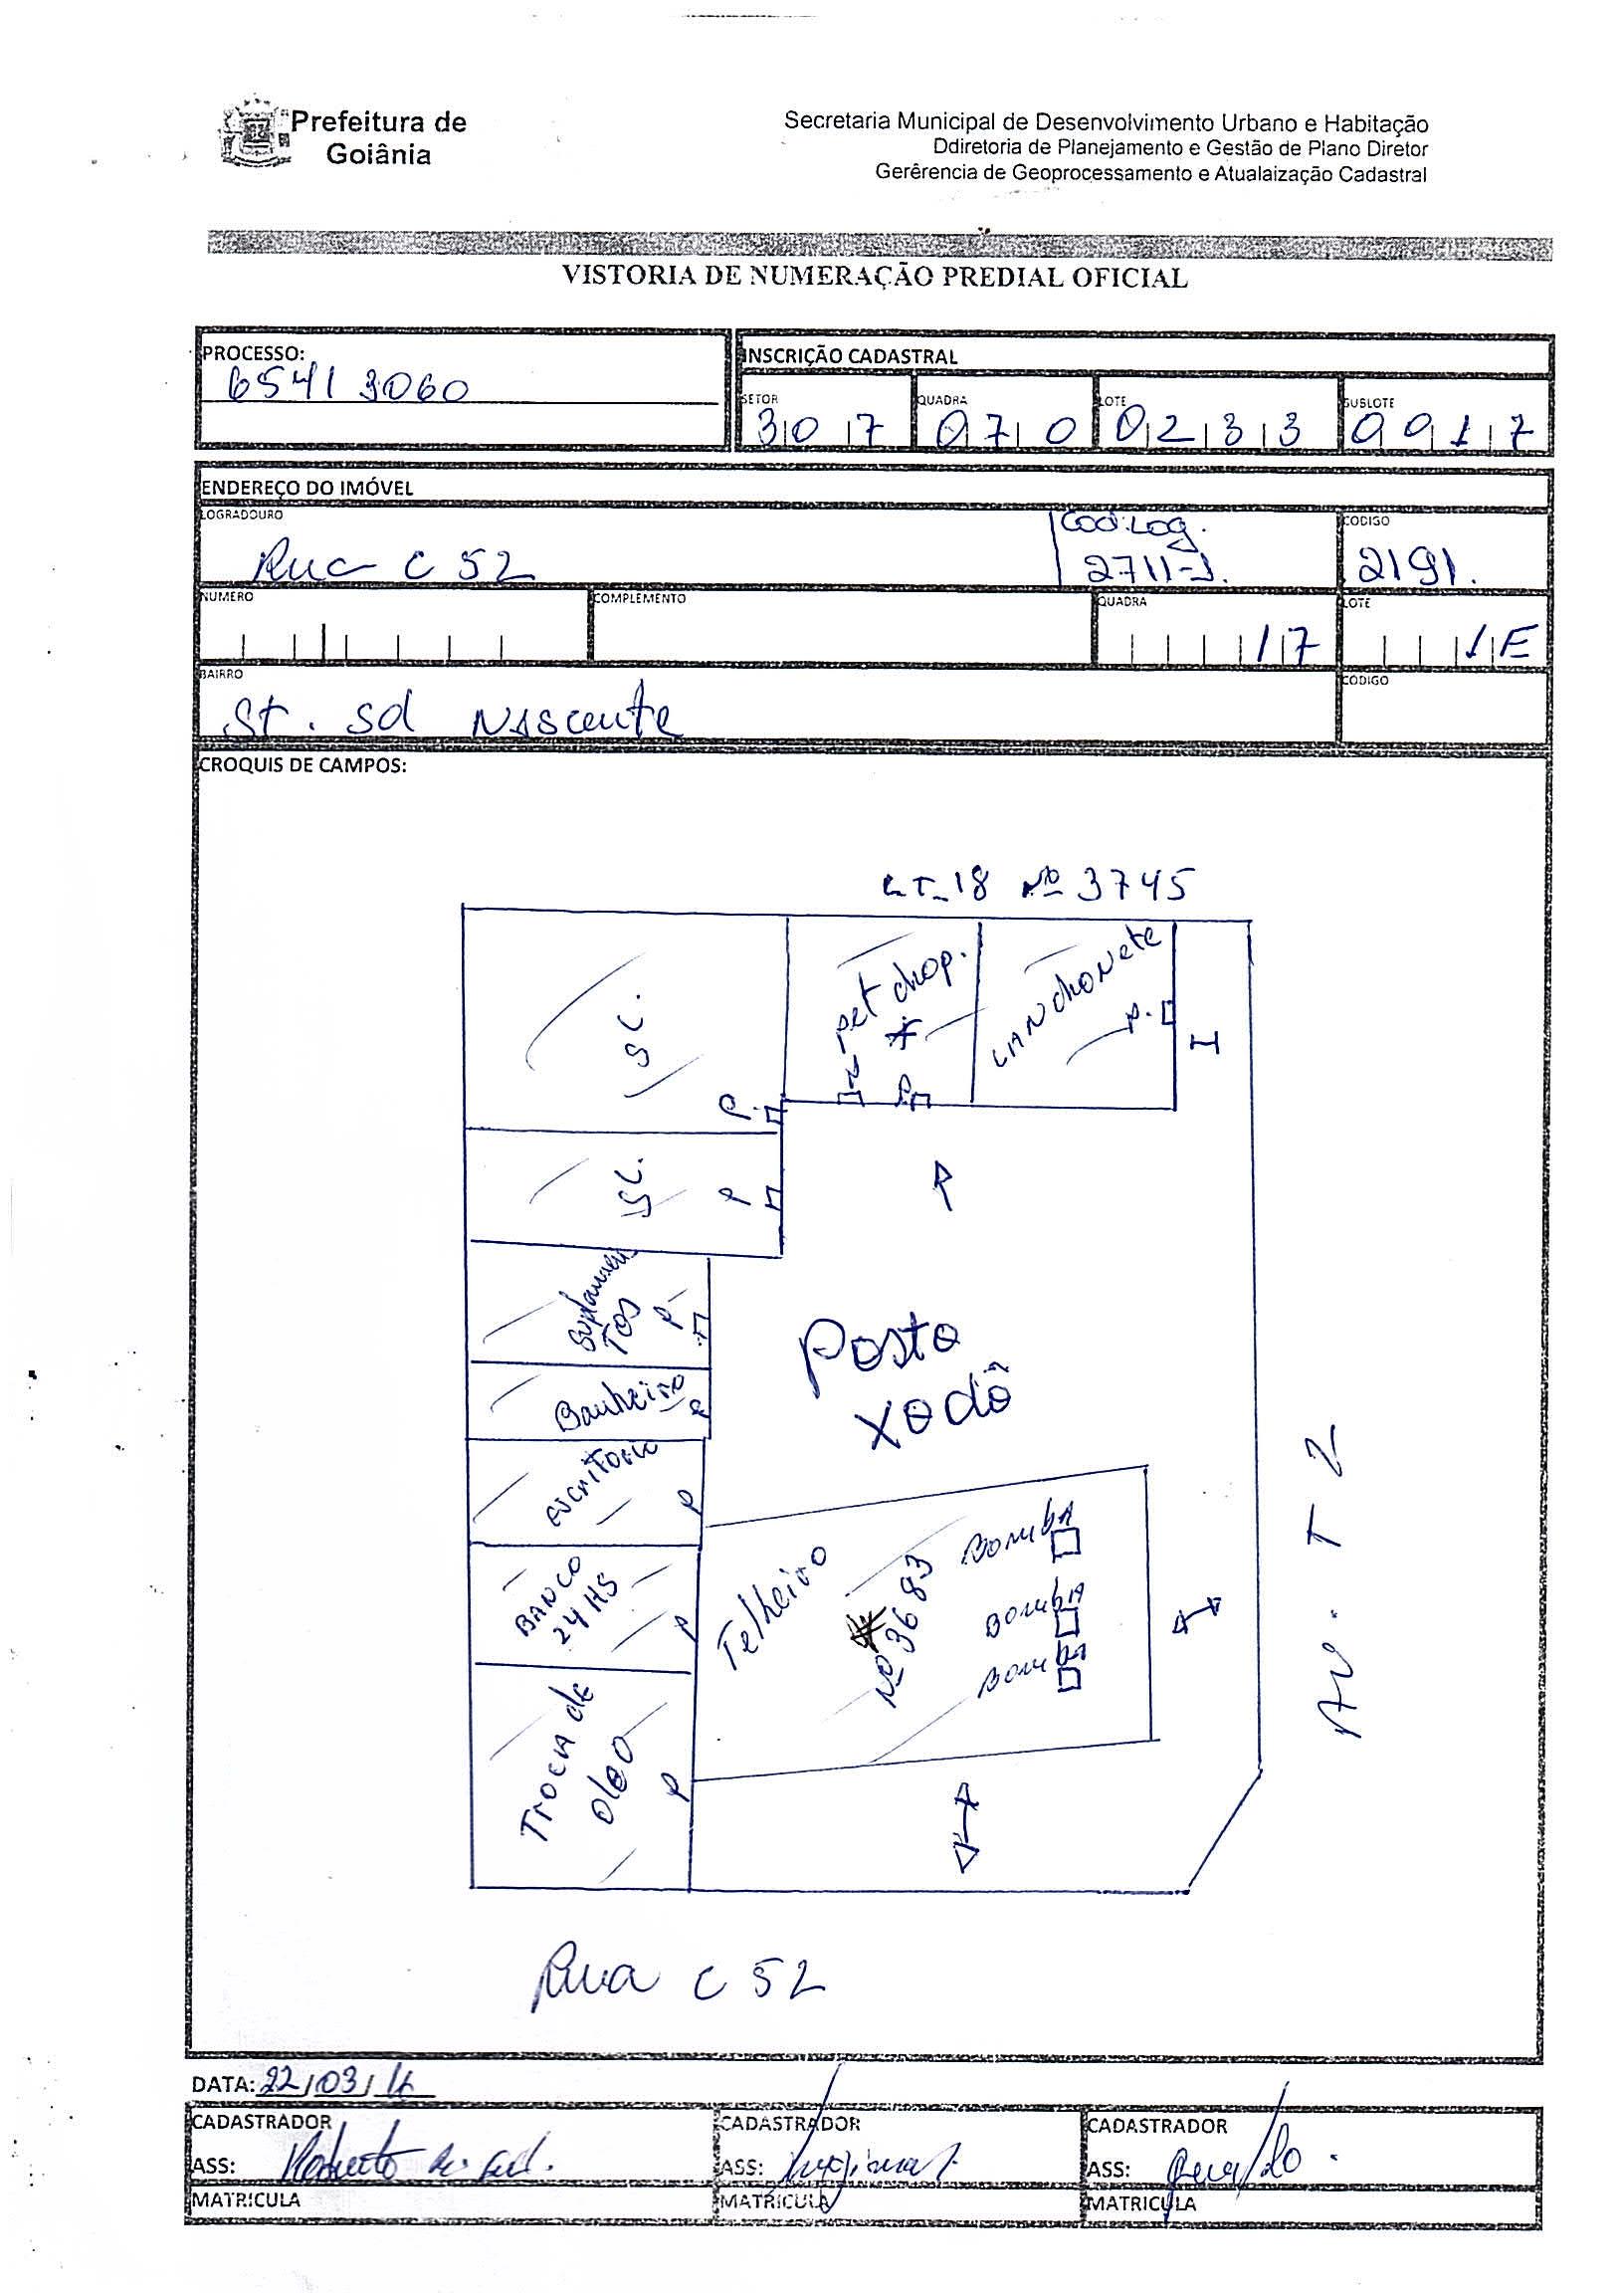 Prefeitura de
Goiânia
Secretaria Municipal de Desenvolvimento Urbano e Habitação
Ddiretoria de Planejamento e Gestão de Plano Diretor
Gerêrencia de Geoprocessamento e Atualaização Cadastral
VISTORIA DE NUMERAÇÃO PREDIAL OFICIAL
PROCESSO:
65413060
INSCRIÇÃO CADASTRAL
SETOR QUADRA LOTE SUBLOTE
307 070 0233 0017
ENDEREÇO DO IMÓVEL
LOGRADOURO
Rua C 52
Cod. Log.
2711-J.
CODIGO
2191.
NUMERO COMPLEMENTO QUADRA LOTE
17 1E
BAIRRO CODIGO
St. Sol Nascente
CROQUIS DE CAMPOS:
LT-18 Nº 3745
SL.
pet chop.
LANchoNete
P.
P.
P.
I
SL.
P
R
Suplemen
Tos
P
Posto
xodô
Banheiro
P
escritorio
P
BANCO
24 HS
P
Telheiro
Nº 3683
BombA
BombA
BombA
Av. T 2
Troca de
oleo
P
Rua C 52
DATA: 22/03/
CADASTRADOR CADASTRADOR CADASTRADOR
ASS: Roberto
ASS:
ASS: Geraldo
MATRICULA MATRICULA MATRICULA